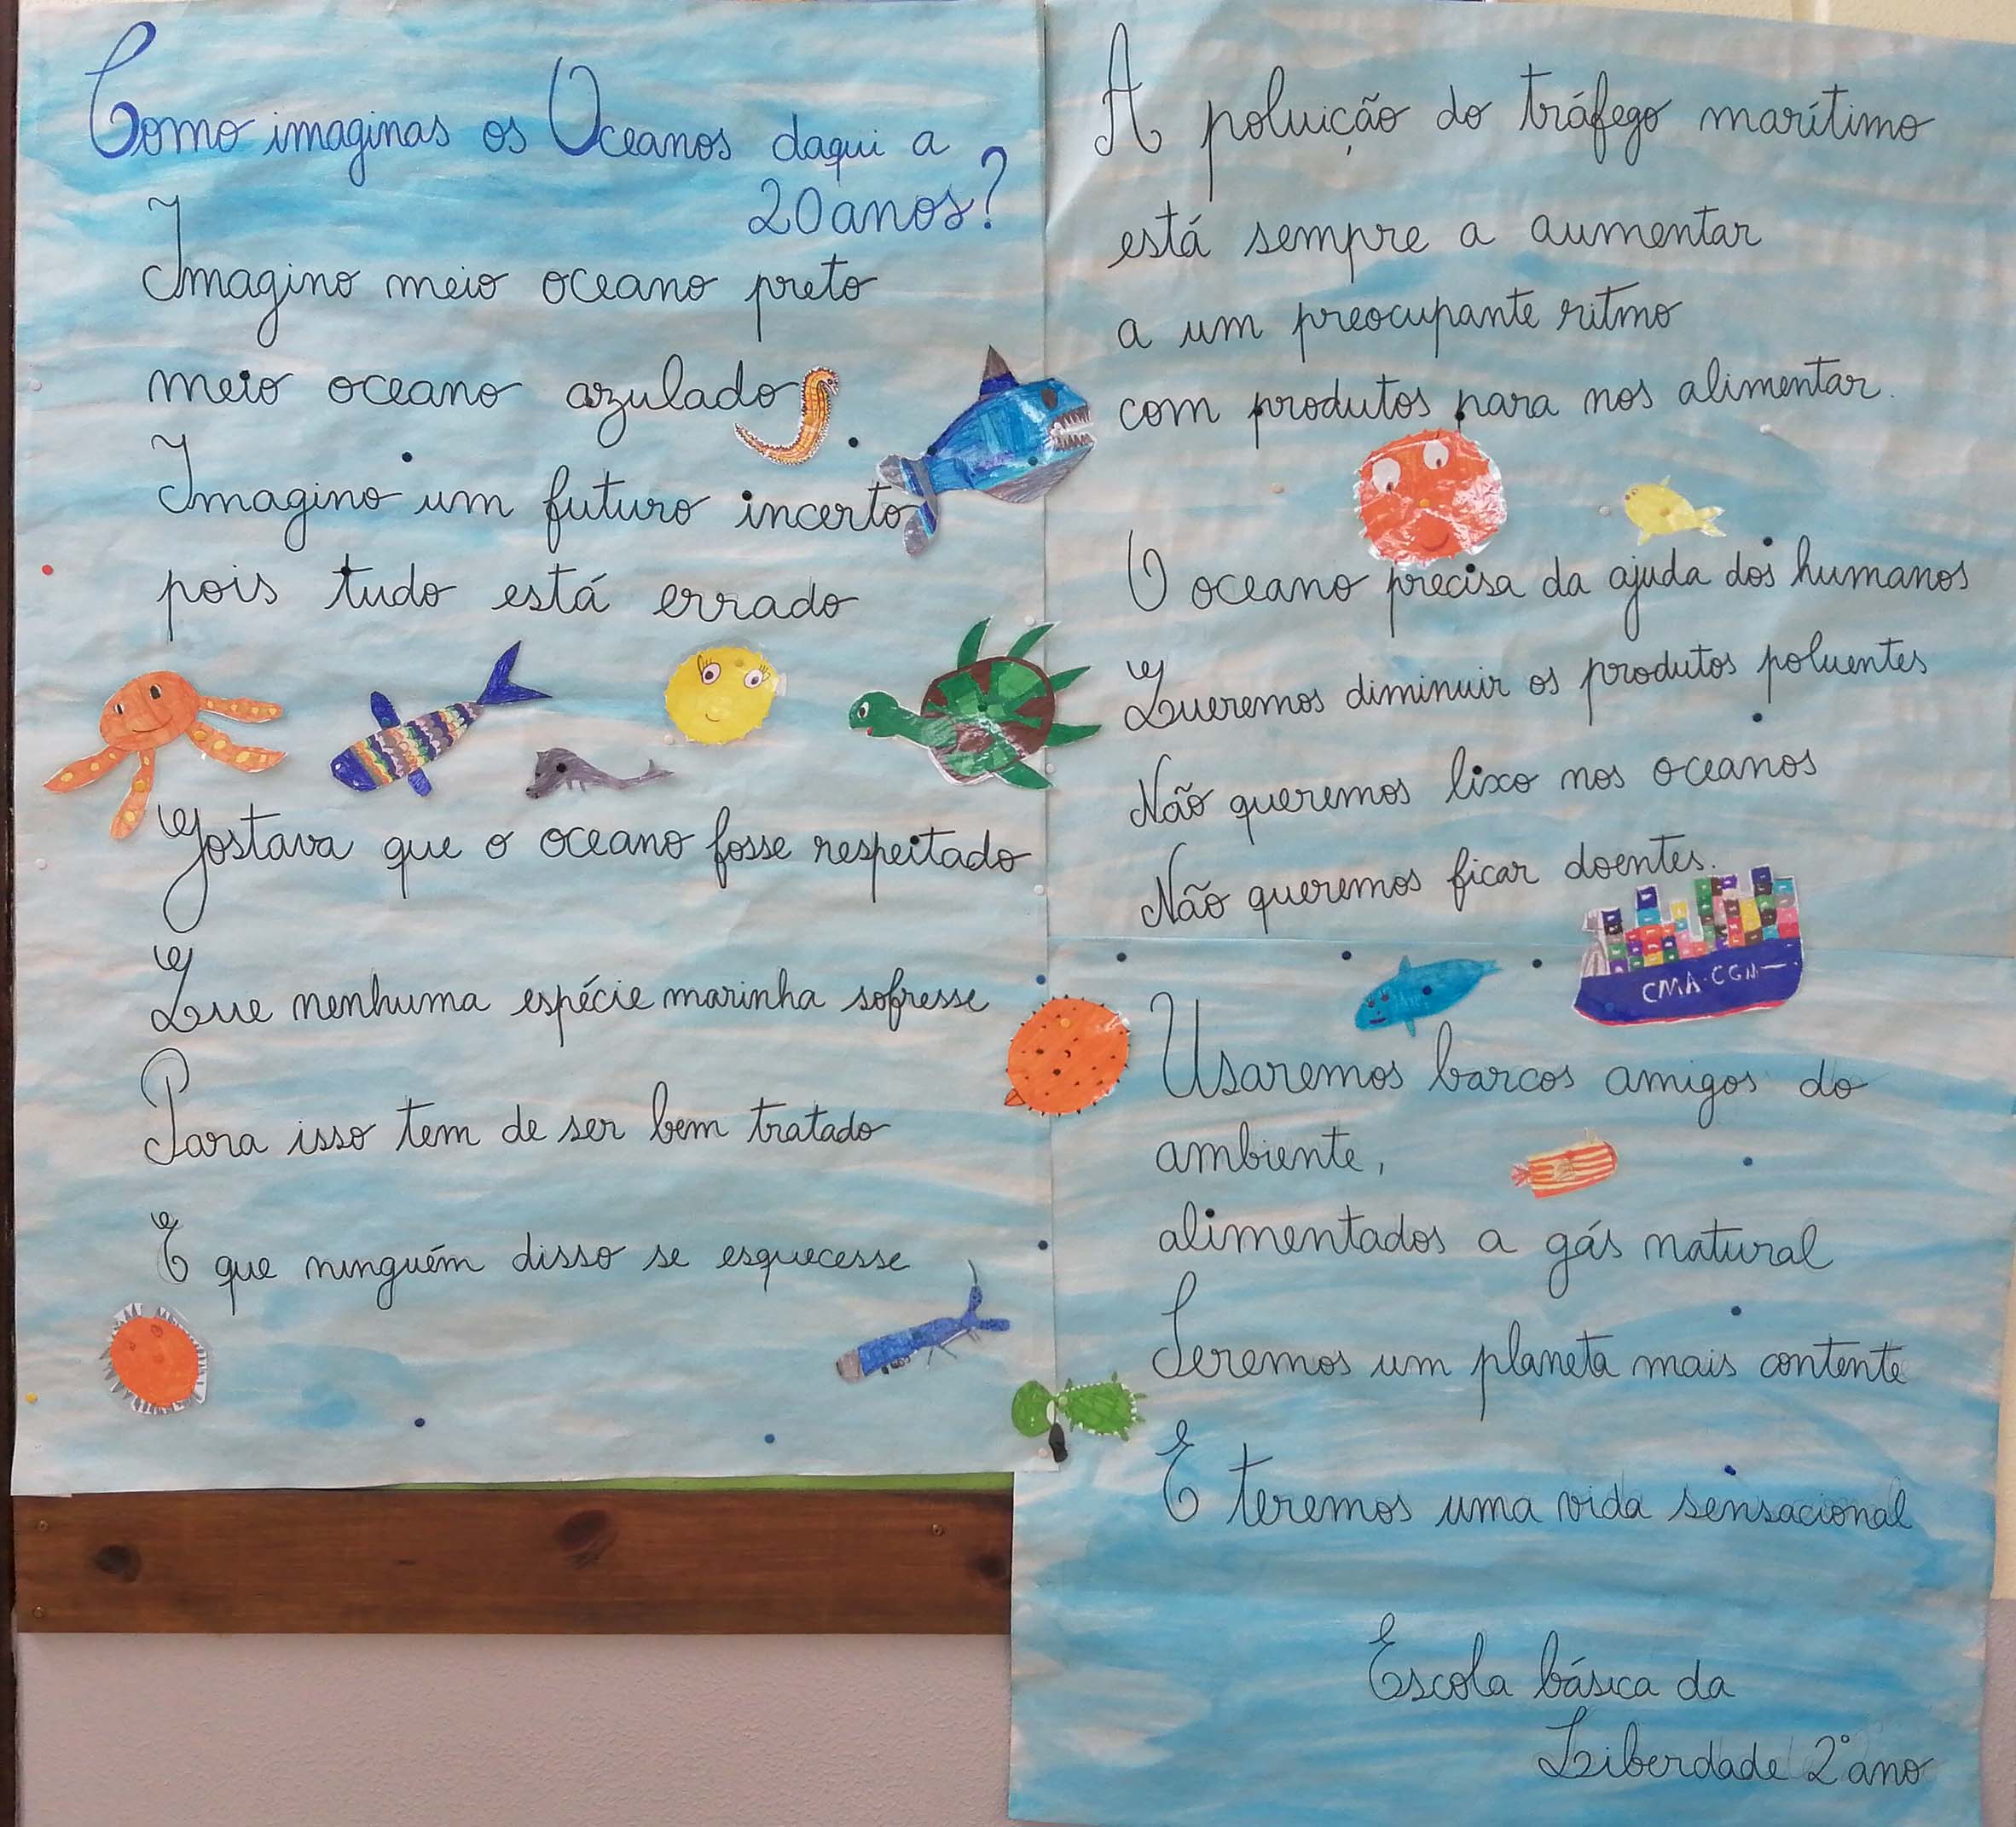 Como imaginas os Oceanos daqui a
20 anos?
Imagino meio oceano preto
meio oceano azulado
Imagino um futuro incerto
pois tudo está errado
Gostava que o oceano fosse respeitado
Que nenhuma espécie marinha sofresse
Para isso tem de ser bem tratado
E que ninguém disso se esquecesse
A poluição do tráfego marítimo
está sempre a aumentar
a um preocupante ritmo
com produtos para nos alimentar.
O oceano precisa da ajuda dos humanos
Queremos diminuir os produtos poluentes
Não queremos lixo nos oceanos
Não queremos ficar doentes.
CMA-CGM
Usaremos barcos amigos do
ambiente,
alimentados a gás natural
Seremos um planeta mais contente
E teremos uma vida sensacional
Escola básica da
Liberdade 2º ano